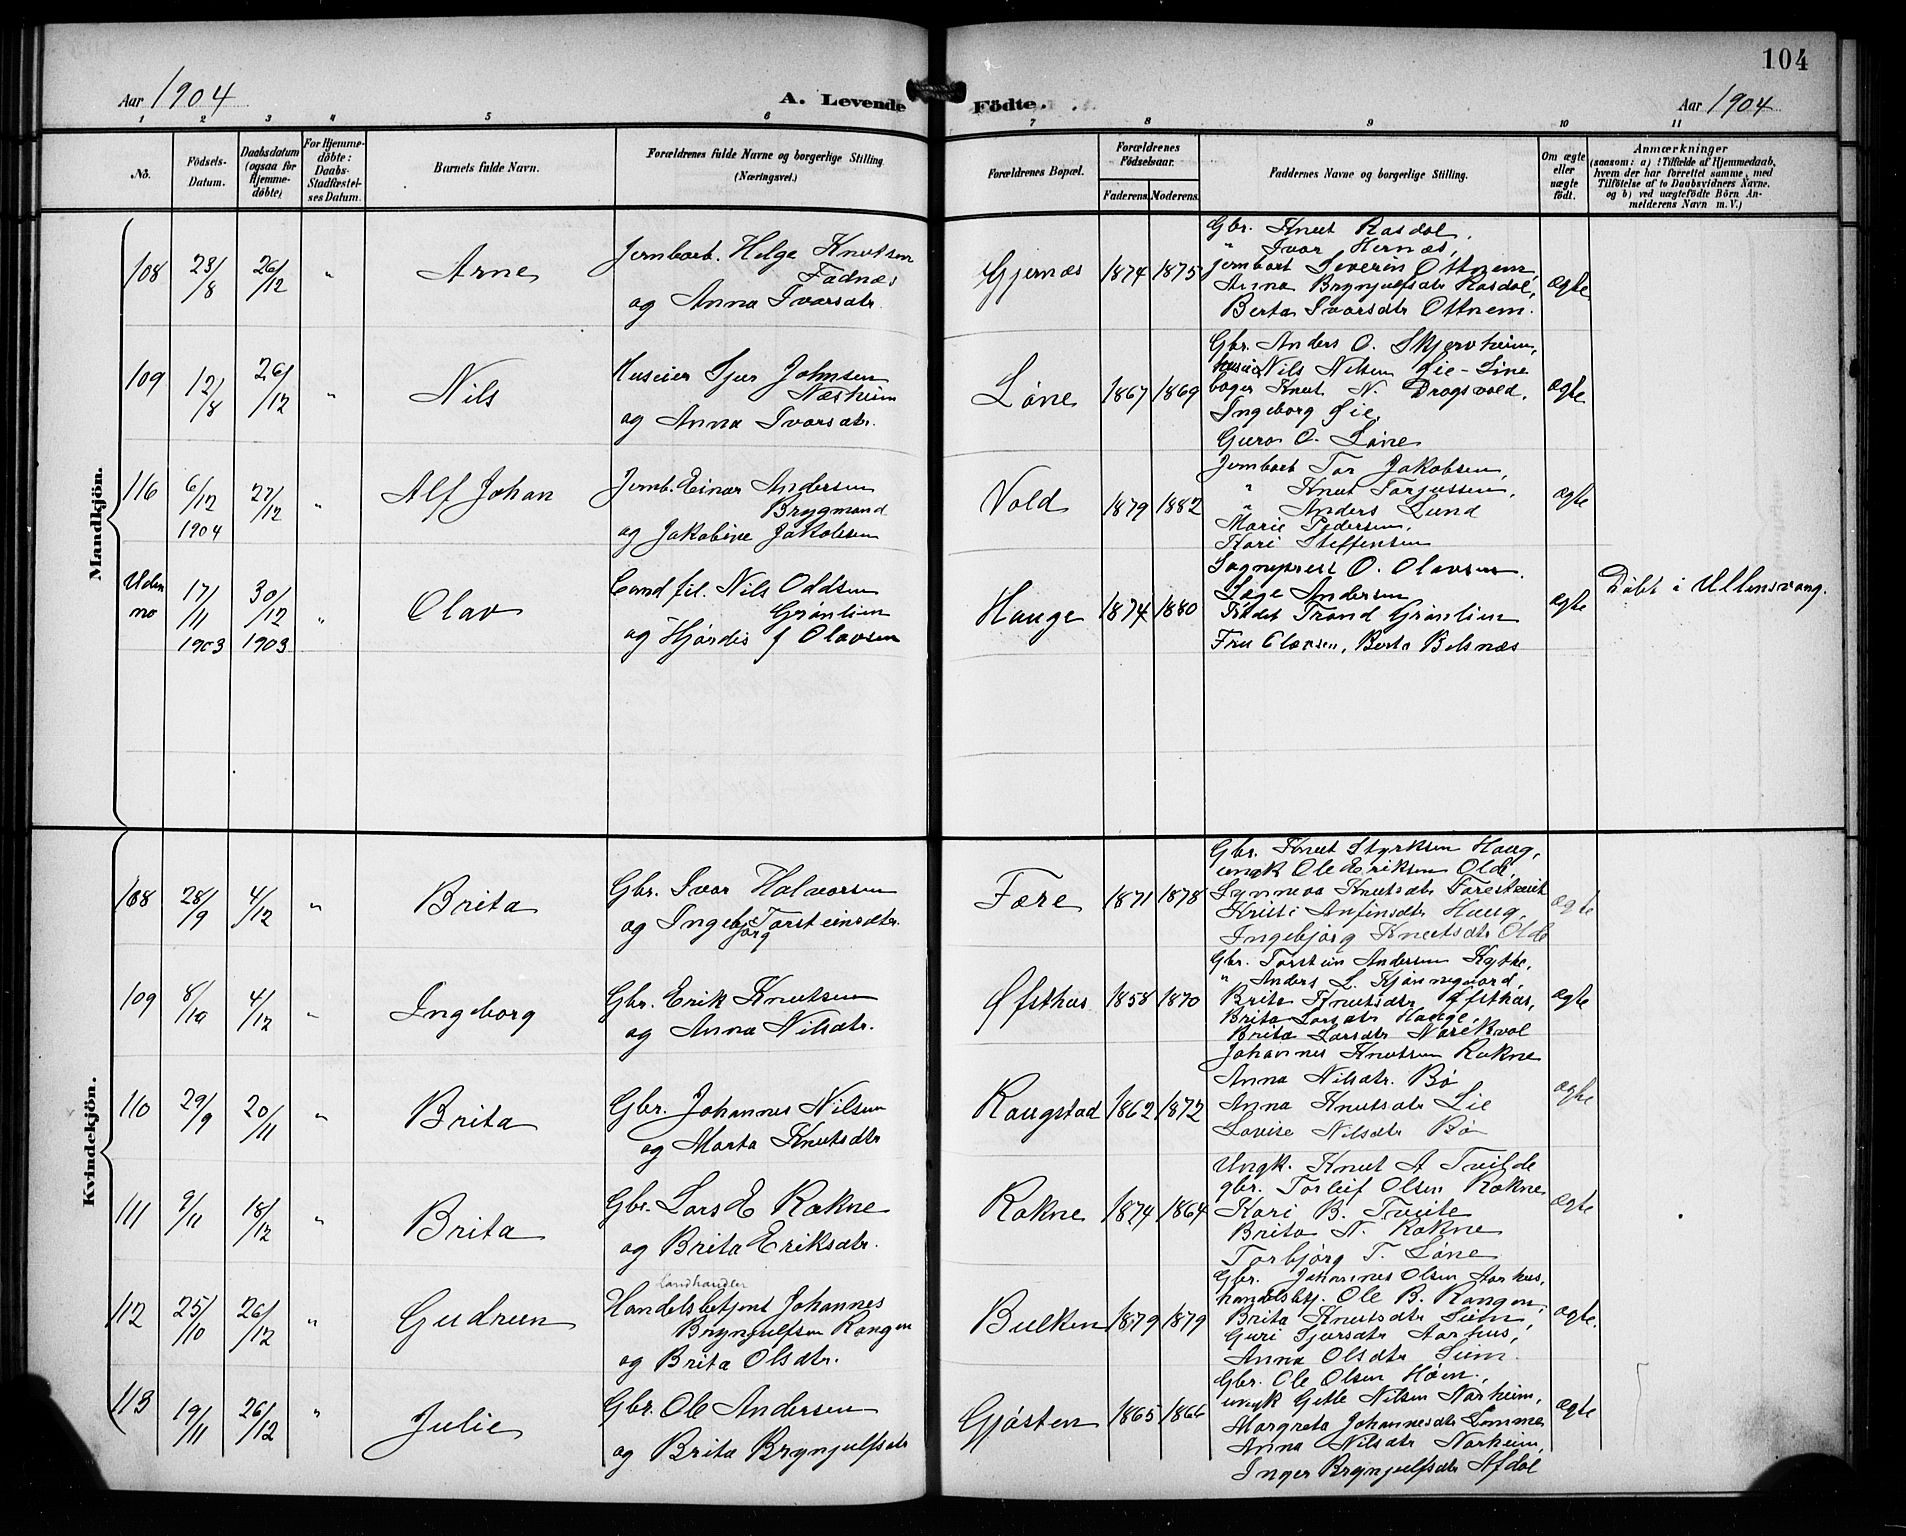 104
Aar 1904
A. Levende
Födte.
Aar 1904
1 2 3 4 5 6 7 8 9 10 11
No.
Födsels-Datum.
Daabsdatum (ogsaa for Hjemme-döbte)
For Hjemme-döbte: Daabs-Stadfæstel-ses Datum.
Barnets fulde Navn.
Forældrenes fulde Navne og borgerlige Stilling. (Næringsvei.)
Forældrenes Bopæl.
Forældrenes Födselsaar.
Faderens Moderens
Faddernes Navne og borgerlige Stilling.
Om ægte eller uægte födt.
Anmærkninger
(saasom: a) i Tilfælde af Hjemmedaab, hvem der har forrettet samme, med Tilföielse af to Daabsvidners Navne, og b) ved uægtefödte Börn An-melderens Navn m. V.)
Mandkjön.
108 23/8 26/12 " Arne
Jernbarb. Helge Knutsen
Fadnæs
og Anna Ivarsdtr.
Gjernæs 1874 1875
Gbr. Knut Rasdal,
" Ivar Hernæs,
Jernbarb Severin Ottnem,
Anna Brynjulfsdtr Rasdal,
Berta Ivarsdtr Ottnem.
ægte
109 12/8 26/12 " Nils
Huseier Sjur Johnsen
Næsheim
og Anna Ivarsdtr.
Løne 1867 1869
Gbr. Anders O. Skjervheim,
huseier Nils Nilsen Lie-Line
bager Knut N. Drogsvold,
Ingeborg Lie,
Guro O. Løne
ægte
116 6/12 1904 27/12 " Alf Johan
Jernb. Einar Andersen
Brygmand
og Jakobine Jakobsen
Vold 1879 1882
Jernbarb Tor Jakobsen,
" Knut Torjussen,
" Anders Lund
Marie Pedersen,
Kari Steffensen
ægte
Uden no 17/11 1903 30/12 1903 " Olav
Cand fil. Nils Oddsen
Grønlien
og Hjørdis f Olavsen
Hauge 1874 1880
Sogneprest O. Olavsen,
Læge Andersen
Kadet Trond Grønlien
Fru Olavsen, Berta Belsnæs
ægte
Døbt i Ullensvang.
Kvindekjön.
108 28/9 4/12 " Brita
Gbr. Ivar Halvorsen
og Ingebjørg Torsteinsdtr.
Fære 1871 1878
Gbr. Knut Styrksen Haug,
ungk Ole Eriksen Olde,
Synneva Knutsdtr Foresteveit
Kristi Anfinsdtr Haug,
Ingebjørg Knutsdtr Olde
ægte
109 8/10 4/12 " Ingeborg
Gbr. Erik Knutsen
og Anna Nilsdtr.
Øfsthus 1858 1870
Gbr. Torstein Andersen Kythe,
" Anders L. Kjønnegaard,
Brita Knutsdtr Øfsthus,
Brita Larsdtr Hauge,
Brita Larsdtr Norekval
ægte
110 29/9 20/11 " Brita
Gbr. Johannes Nilsen
og Marta Knutsdtr
Raugstad 1862 1872
Johannes Knutsen Rokne
Anna Nilsdtr. Bø
Anna Knutsdtr Lie
Lovise Nilsdtr Bø
ægte
111 9/11 18/12 " Brita
Gbr. Lars E Rokne
og Brita Eriksdtr.
Rokne 1874 1864
Ungk. Knut A Tvilde
gbr. Torleif Olsen Rokne
Kari B. Tveite
Brita N. Rokne
Torbjørg T. Løne
ægte
112 25/10 26/12 " Gudrun
Landhandler
Handelsbetjent Johannes
Brynjulfsen Rongen
og Brita Olsdtr.
Bulken 1879 1879
Gbr. Johannes Olsen Aarhus,
handelsbtj. Ole B. Rongen,
Brita Knutsdtr Liem,
Guri Sjursdtr Aarhus,
Anna Olsdtr Liem.
ægte.
113 19/11 26/12 " Julie
Gbr. Ole Andersen
og Brita Brynjulfsdtr
Gjøsten 1865 1866
Gbr. Ole Olsen Høin,
ungk Gitle Nilsen Norheim,
Margreta Johannesdtr Lemme
Anna Nilsdtr Norheim,
Inger Brynjulfsdtr Afdal
ægte